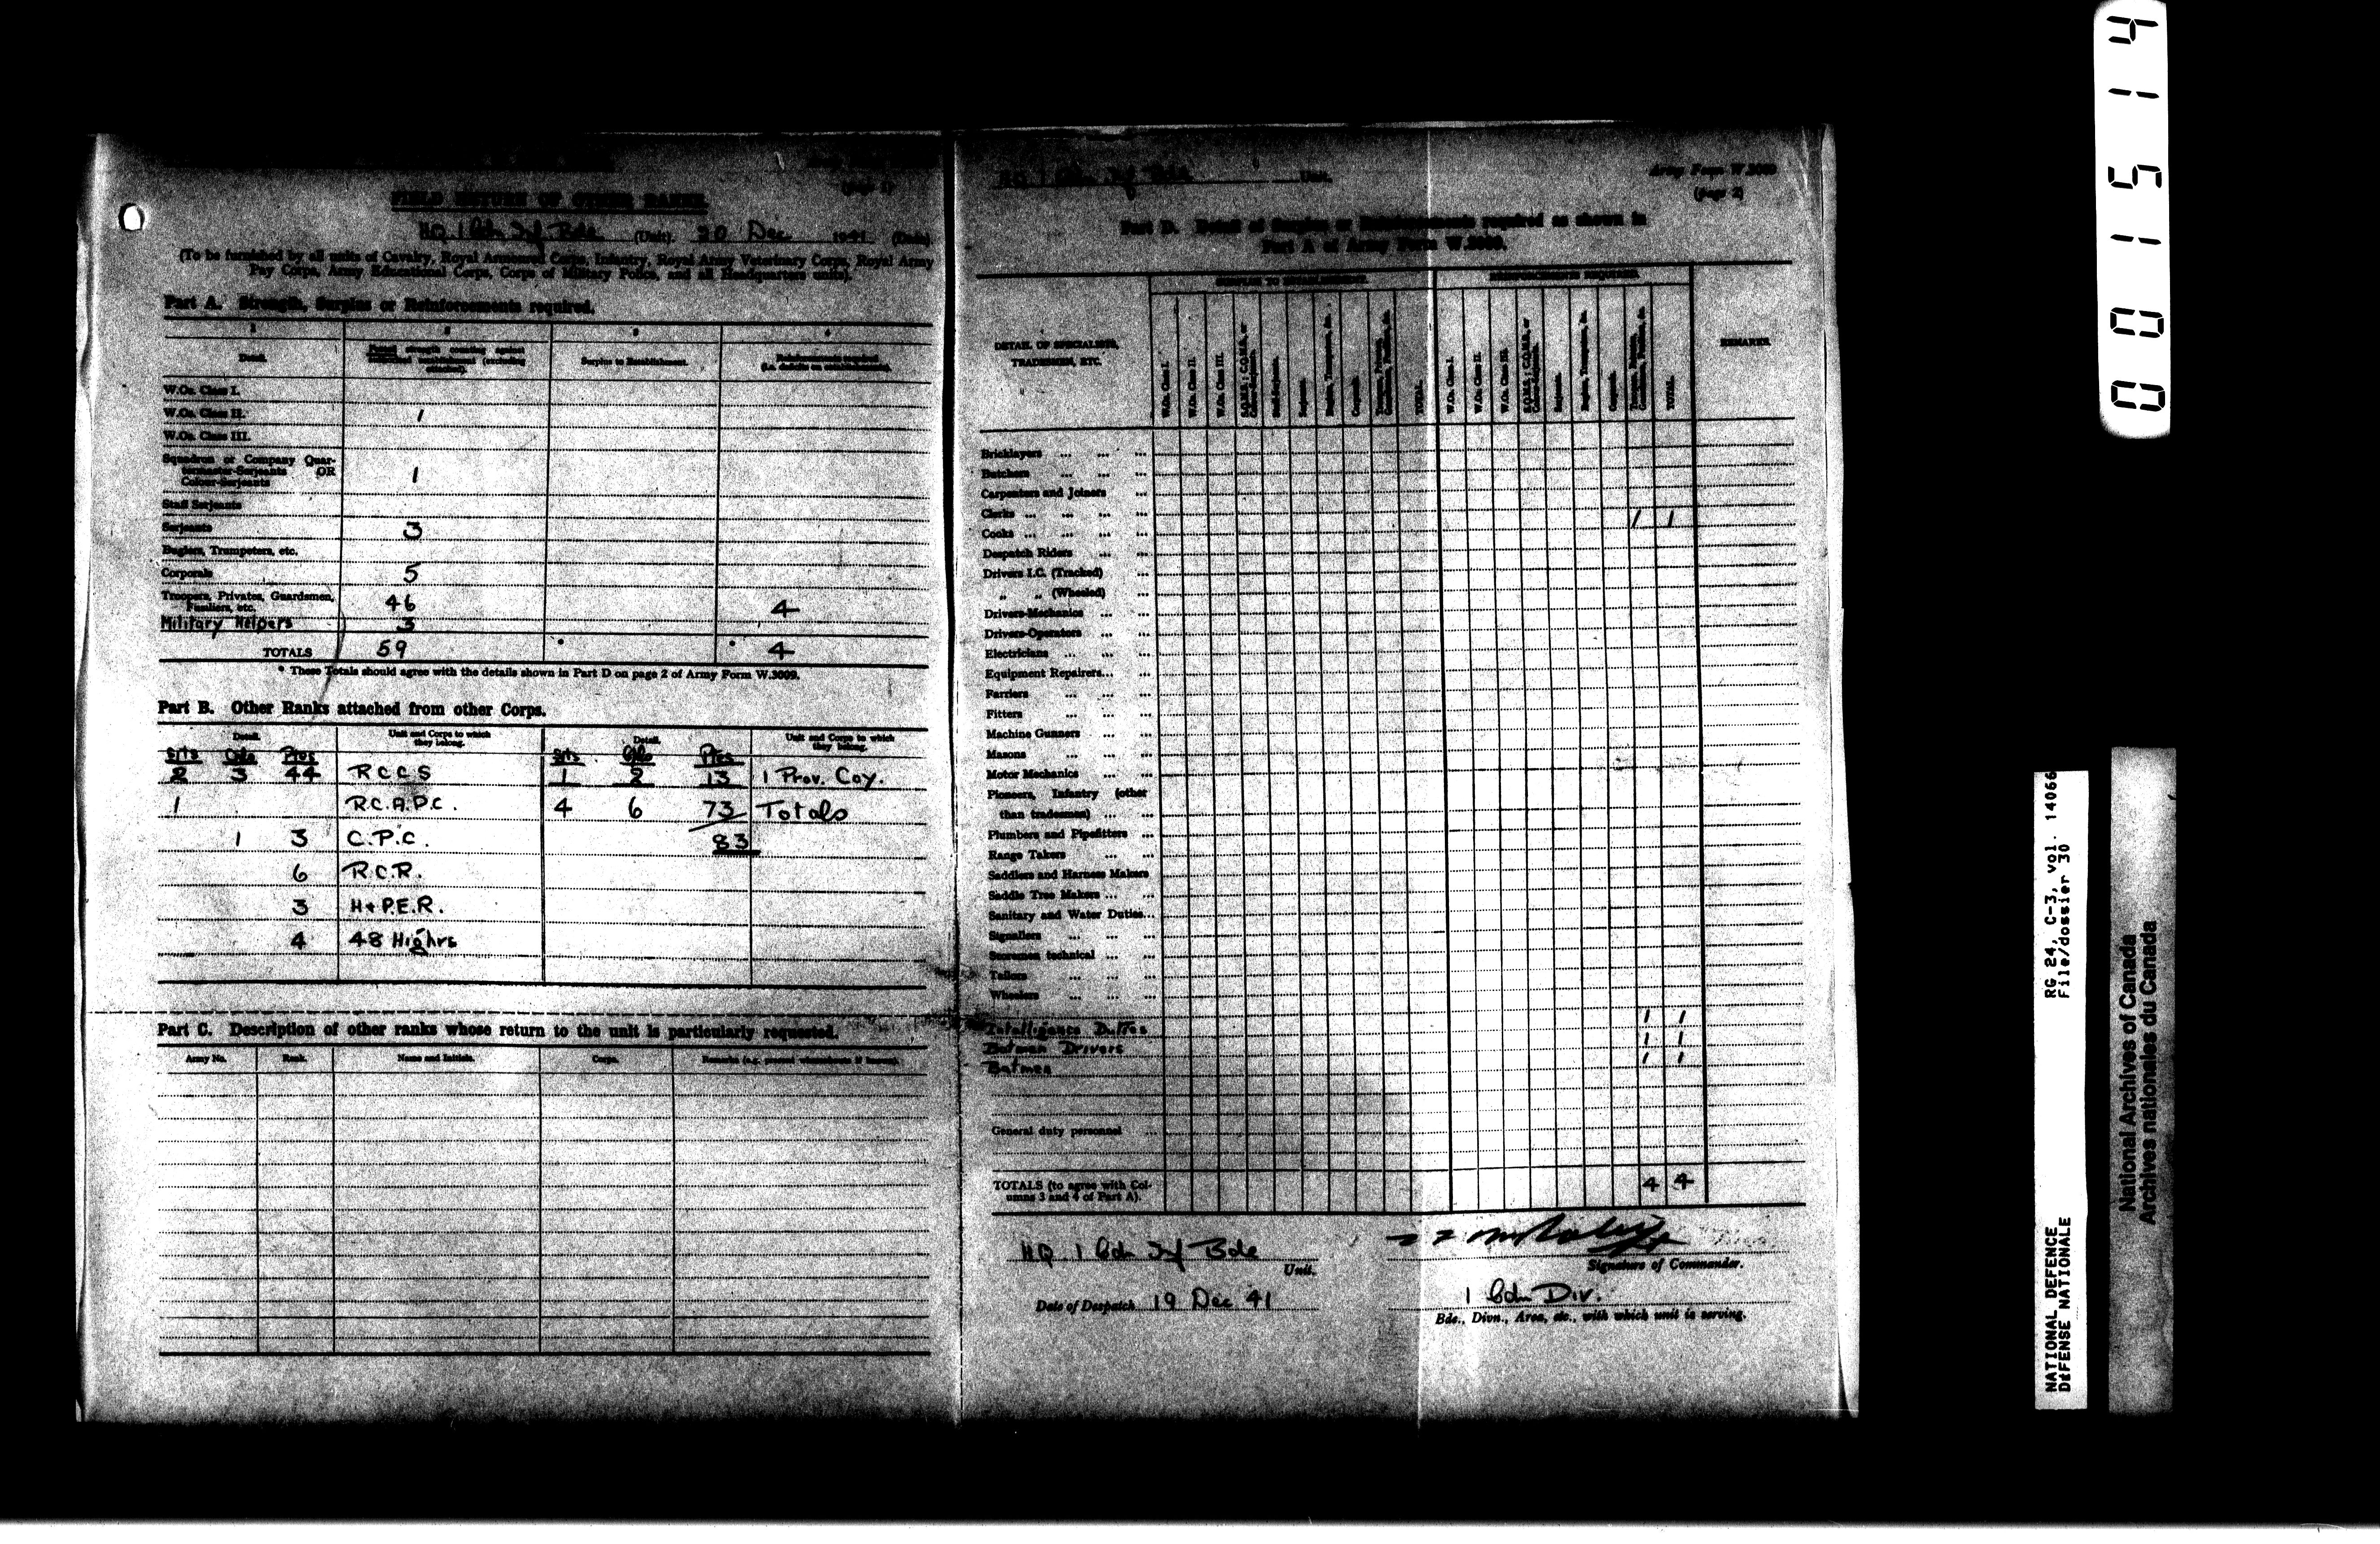 (page 1)
FIELD RETURN OF OTHER RANKS.
HQ 1 Cdn Inf Bde (Unit). 20 Dec 1941 (Date)
(To be furnished by all units of Cavalry, Royal Armoured Corps, Infantry, Royal Army Veterinary Corps, Royal Army
Pay Corps, Army Educational Corps, Corps of Military Police, and all Headquarters units).
Part A. Strength, Surplus or Reinforcements required.
1 2 3 4
Detail. Surplus to Establishment. Reinforcements required
(i.e. deficits on establishment).
W.Os. Class I.
W.Os. Class II. 1
W.Os. Class III.
Squadron or Company Quar-
termaster-Serjeants OR
Colour-Serjeants 1
Staff Serjeants
Serjeants 3
Buglers, Trumpeters, etc.
Corporals 5
Troopers, Privates, Guardsmen,
Fusiliers, etc. 46 4
Military Helpers 3
TOTALS 59 * * 4
* These Totals should agree with the details shown in Part D on page 2 of Army Form W.3009.
Part B. Other Ranks attached from other Corps.
Detail. Unit and Corps to which
they belong. Detail. Unit and Corps to which
they belong.
Sjts Cpls Ptes Sjts Cpls Ptes
2 3 44 R C C S 1 2 13 1 Prov. Coy.
1 R.C.A.P.C. 4 6 73 Totals
1 3 C.P.C. 83
6 R.C.R.
3 H & P.E.R.
4 48 Highrs
Part C. Description of other ranks whose return to the unit is particularly requested.
Army No. Rank. Name and Initials. Corps. Remarks (e.g. present whereabouts if known).
HQ 1 Cdn Inf Bde Unit.
Army Form W.3009
(page 2)
Part D. Detail of Surplus or Reinforcements required as shown in
Part A of Army Form W.3009.
SURPLUS TO ESTABLISHMENT. REINFORCEMENTS REQUIRED.
DETAIL OF SPECIALISTS,
TRADESMEN, ETC.
W.Os. Class I. W.Os. Class II. W.Os. Class III. S.Q.M.S.; C.Q.M.S. or Colour-Serjeants. Staff-Serjeants. Serjeants. Buglers, Trumpeters, &c. Corporals. Troopers, Privates, Guardsmen, Fusiliers, &c. TOTAL.
W.Os. Class I. W.Os. Class II. W.Os. Class III. S.Q.M.S.; C.Q.M.S. or Colour-Serjeants. Serjeants. Buglers, Trumpeters, &c. Corporals. Troopers, Privates, Guardsmen, Fusiliers, &c. TOTAL.
REMARKS.
Bricklayers ... ... ...
Butchers ... ... ...
Carpenters and Joiners ...
Clerks ... ... ... ... 1 1
Cooks ... ... ... ...
Despatch Riders ... ...
Drivers I.C. (Tracked) ...
„ „ (Wheeled) ...
Drivers-Mechanics ... ...
Drivers-Operators ... ...
Electricians ... ... ...
Equipment Repairers... ...
Farriers ... ... ...
Fitters ... ... ...
Machine Gunners ... ...
Masons ... ... ...
Motor Mechanics ... ...
Pioneers, Infantry (other
than tradesmen) ... ...
Plumbers and Pipefitters ...
Range Takers ... ...
Saddlers and Harness Makers
Saddle Tree Makers ... ...
Sanitary and Water Duties...
Signallers ... ... ...
Storemen technical ... ...
Tailors ... ... ...
Wheelers ... ... ...
Intelligence Duties 1 1
Batman Drivers 1 1
Batmen 1 1
General duty personnel ...
TOTALS (to agree with Col-
umns 3 and 4 of Part A). 4 4
HQ 1 Cdn Inf Bde
Unit.
Signature of Commander.
Date of Despatch 19 Dec 41
1 Cdn Div.
Bde., Divn., Area, etc., with which unit is serving.
001514
NATIONAL DEFENCE RG 24, C-3, vol. 14066
DÉFENSE NATIONALE File/dossier 30
National Archives of Canada
Archives nationales du Canada